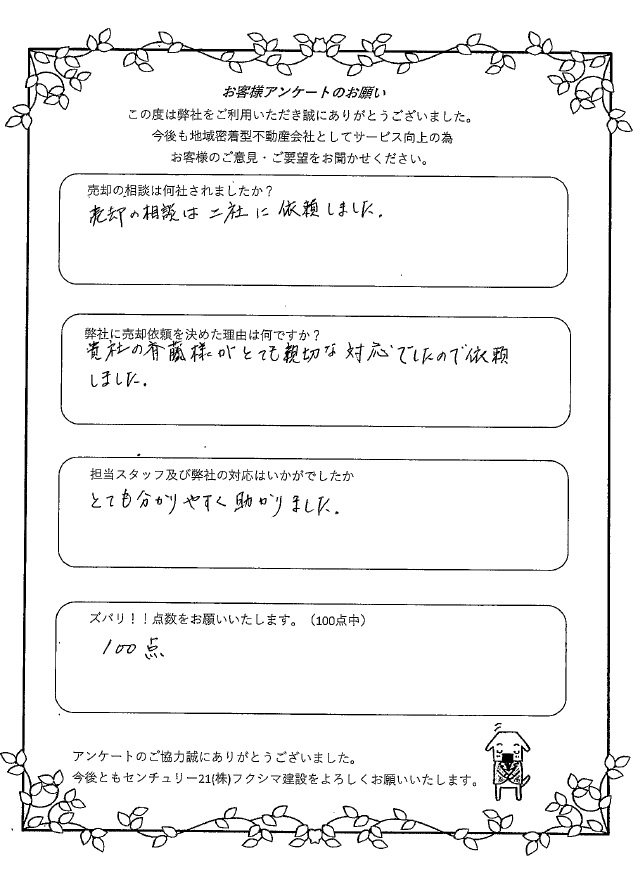 お客様アンケートのお願い
この度は弊社をご利用いただき誠にありがとうございました。
今後も地域密着型不動産会社としてサービス向上の為
お客様のご意見・ご要望をお聞かせください。
売却の相談は何社されましたか?
売却の相談は二社に依頼しました.
弊社に売却依頼を決めた理由は何ですか?
貴社の斉藤様がとても親切な対応でしたので依頼
しました.
担当スタッフ及び弊社の対応はいかがでしたか
とても分かりやすく助かりました.
ズバリ!!点数をお願いいたします。(100点中)
100点
アンケートのご協力誠にありがとうございました。
今後ともセンチュリー21(株)フクシマ建設をよろしくお願いいたします。